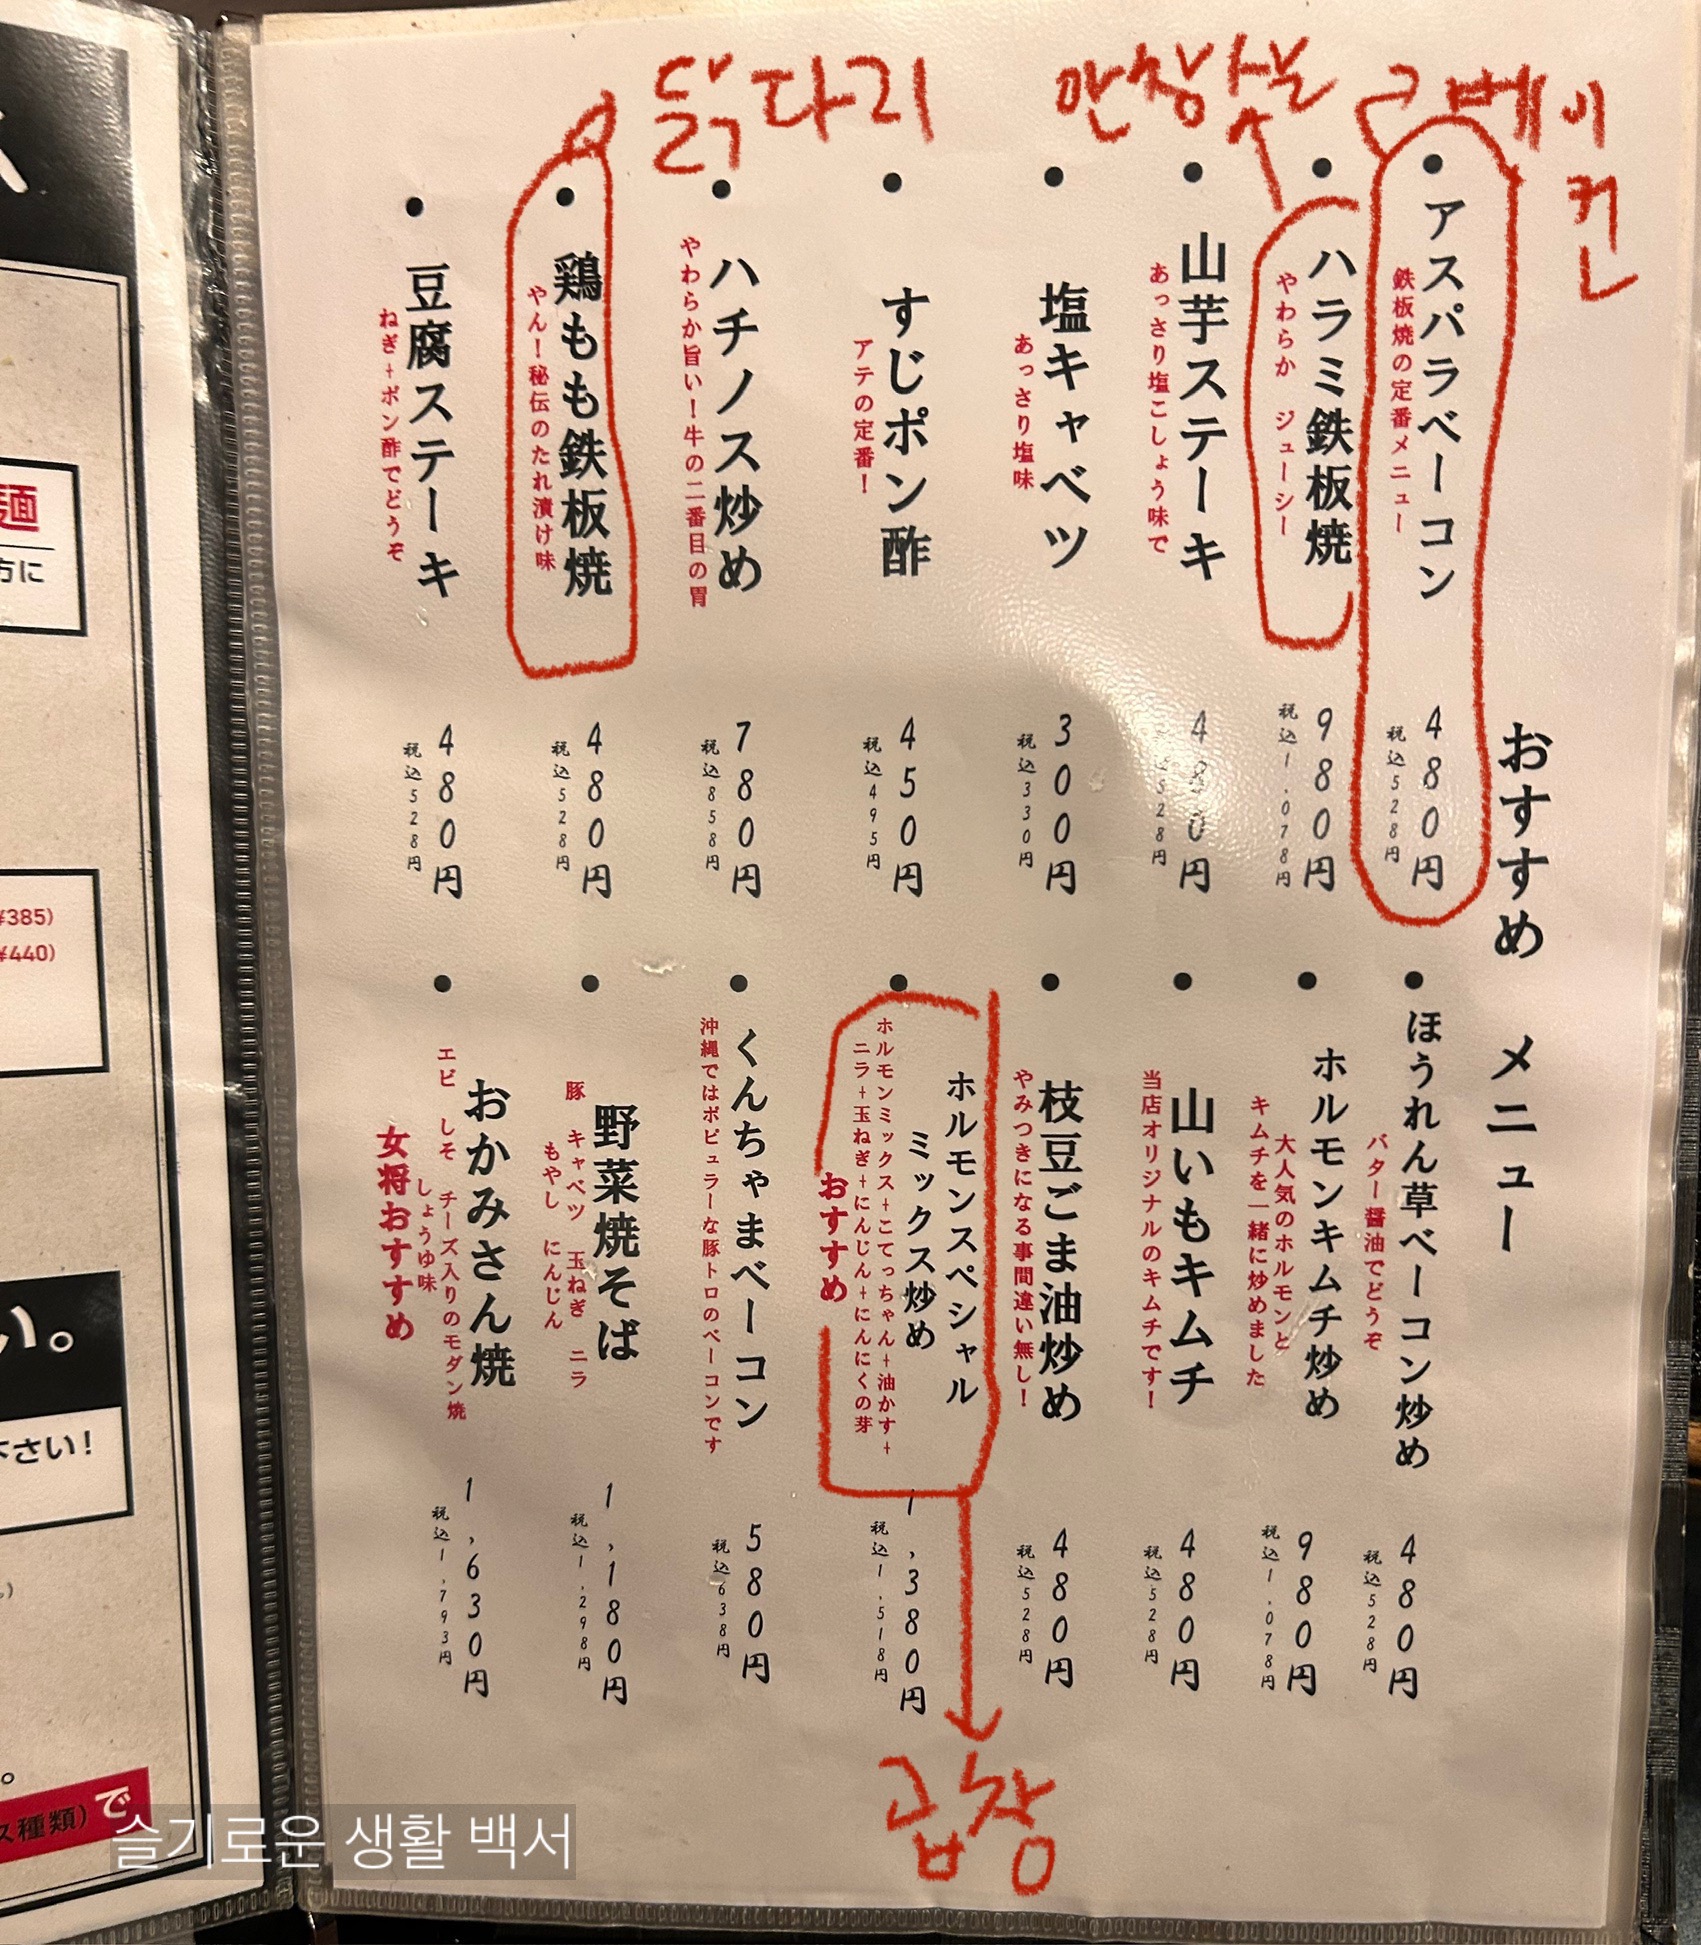 닭다리
안창살
베이
컨
おすすめ メニュー
アスパラベーコン
鉄板焼の定番メニュー
480円
税込528円
ハラミ鉄板焼
やわらか ジューシー
980円
税込1,078円
山芋ステーキ
あっさり塩こしょう味で
480円
税込528円
塩キャベツ
あっさり塩味
300円
税込330円
すじポン酢
アテの定番!
450円
税込495円
ハチノス炒め
やわらか旨い!牛の二番目の胃
780円
税込858円
鶏もも鉄板焼
やん!秘伝のたれ漬け味
480円
税込528円
豆腐ステーキ
ねぎ+ポン酢でどうぞ
480円
税込528円
ほうれん草ベーコン炒め
バター醤油でどうぞ
480円
税込528円
ホルモンキムチ炒め
大人気のホルモンと
キムチを一緒に炒めました
980円
税込1,078円
山いもキムチ
当店オリジナルのキムチです!
480円
税込528円
枝豆ごま油炒め
やみつきになる事間違い無し!
480円
税込528円
ホルモンスペシャル
ミックス炒め
ホルモンミックス+こてっちゃん+油かす+
ニラ+玉ねぎ+にんじん+にんにくの芽
おすすめ
1,380円
税込1,518円
くんちゃまベーコン
沖縄ではポピュラーな豚トロのベーコンです
580円
税込638円
野菜焼そば
豚 キャベツ 玉ねぎ ニラ
もやし にんじん
1,180円
税込1,298円
おかみさん焼
エビ しそ チーズ入りのモダン焼
しょうゆ味
女将おすすめ
1,630円
税込1,793円
곱창
麺
方に
¥385)
¥440)
い。
下さい!
ス種類)で
슬기로운 생활 백서